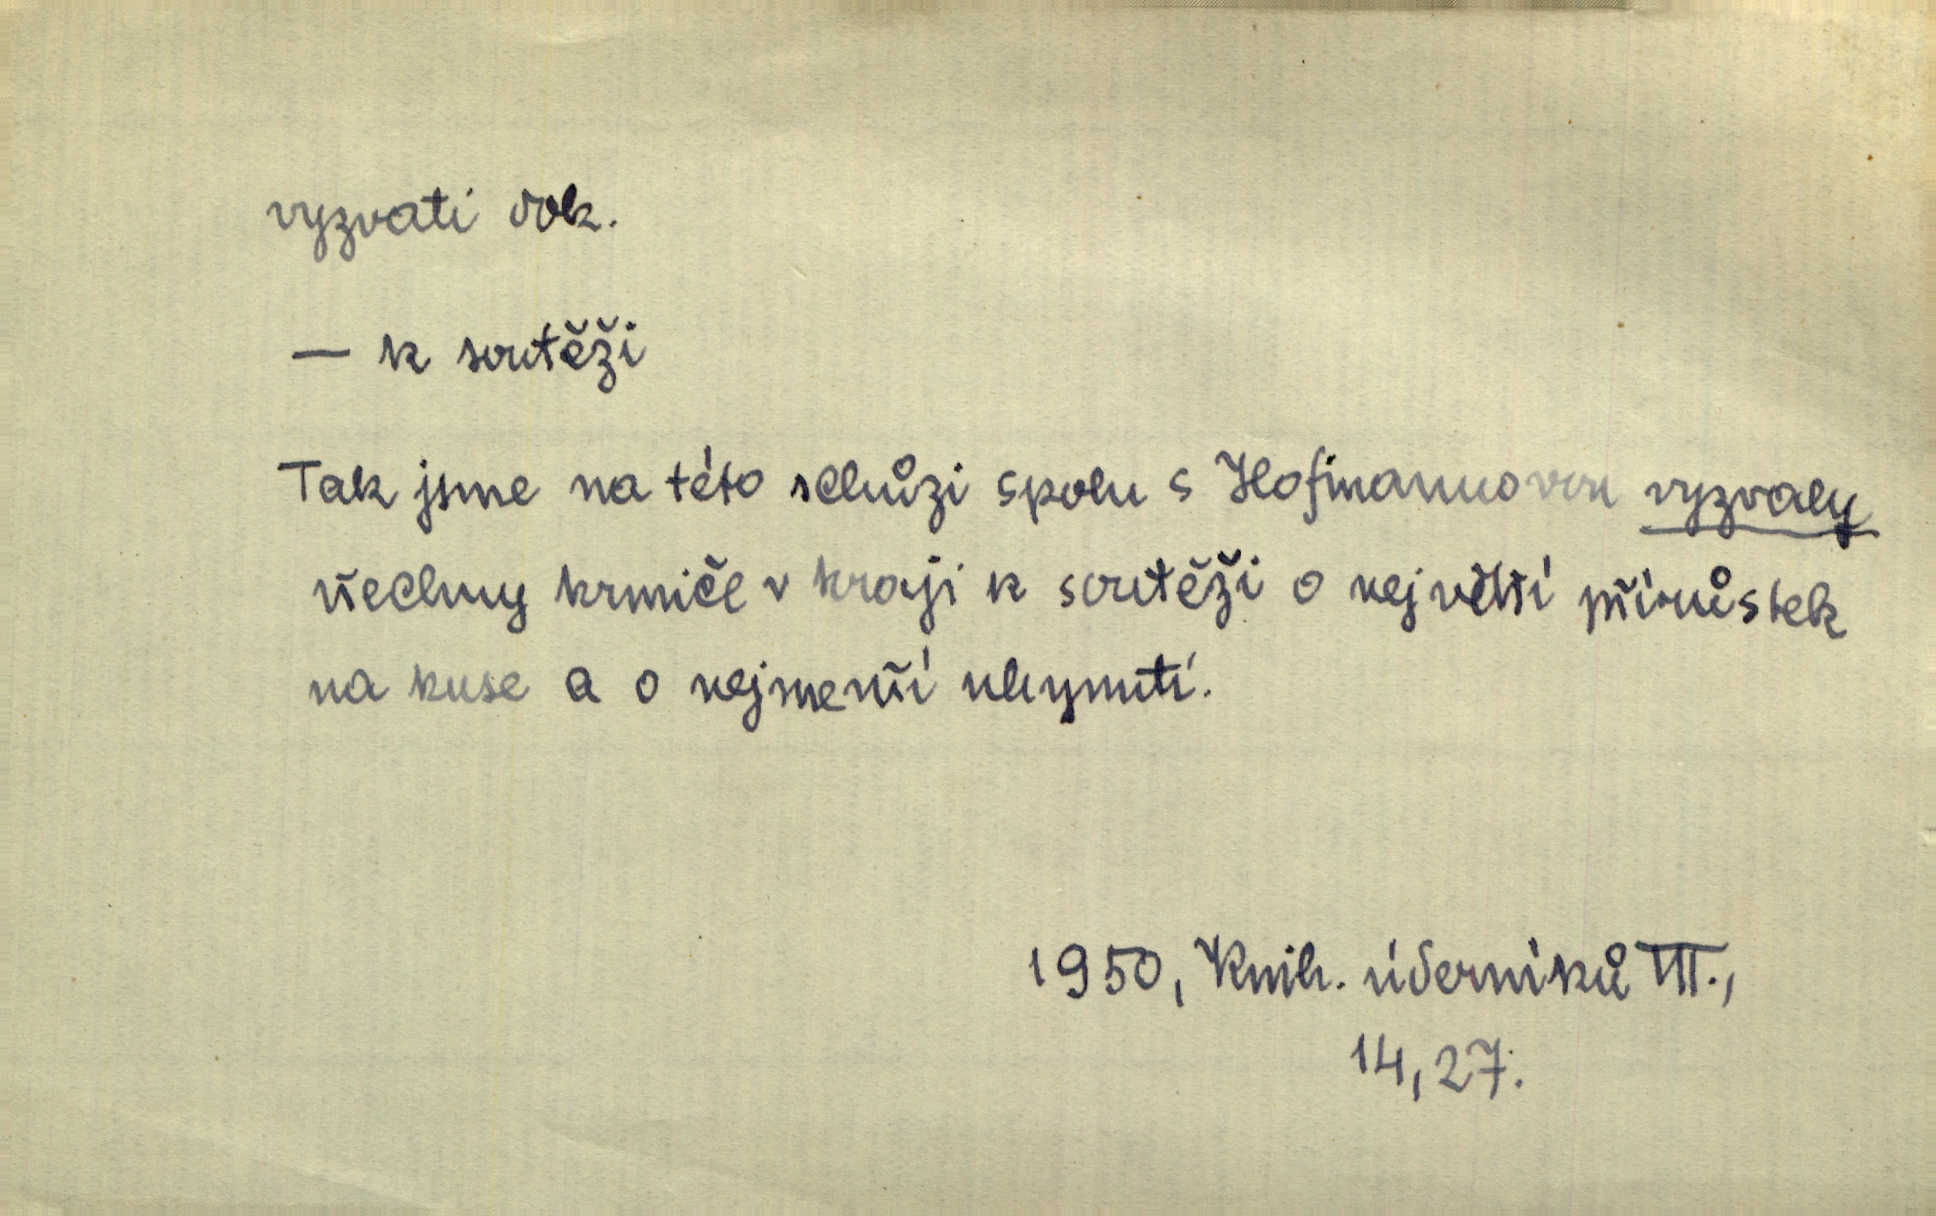 vyzvati dok.
— k soutěži
Tak jsme na této schůzi spolu s Hofmannovou vyzvaly
všechny krmiče v kraji k soutěži o největší přírůstek
na kuse a o nejmenší uhynutí.
1950, Knih. úderníků III.,
14, 27.